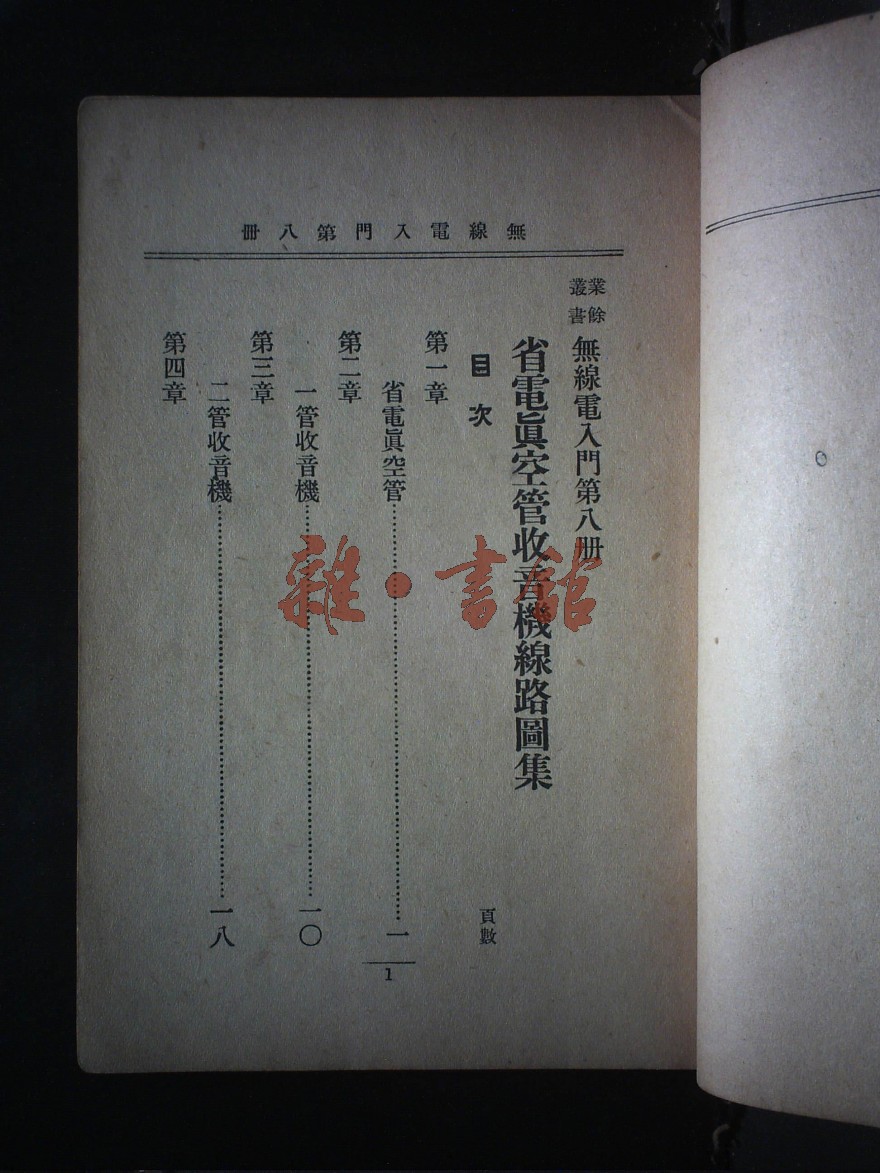 無線電入門第八冊
業餘叢書 無線電入門第八册
省電眞空管收音機線路圖集
目次 頁數
第一章
省電眞空管 一
第二章
一管收音機 一〇
第三章
二管收音機 一八
第四章
1
雜·書舘